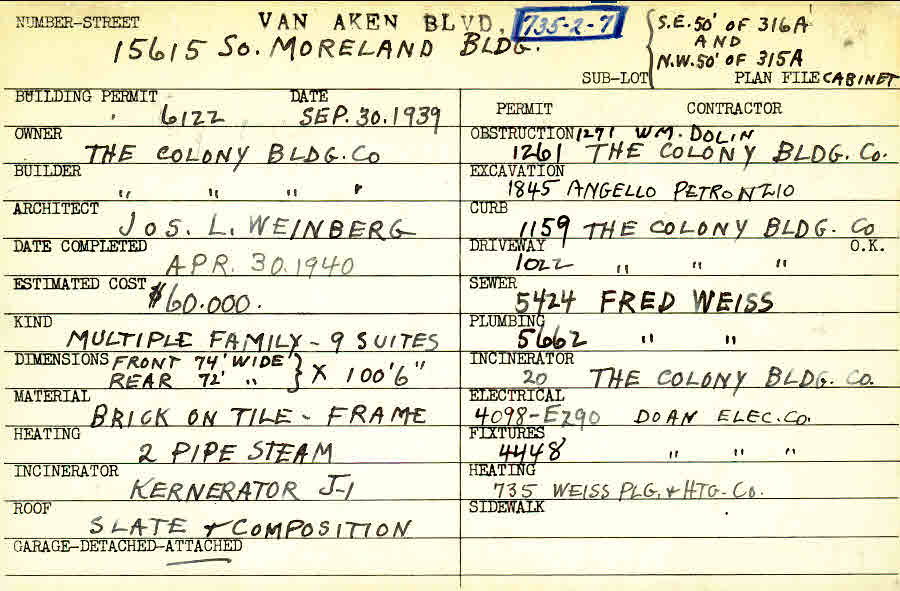 NUMBER-STREET VAN AKEN BLVD. 735-2-7 S.E. 50' OF 316A
15615 SO. MORELAND BLDG. AND
N.W. 50' OF 315A
SUB-LOT PLAN FILE CABINET
BUILDING PERMIT DATE
6122 SEP. 30. 1939
OWNER
THE COLONY BLDG. CO
BUILDER
" " " "
ARCHITECT
JOS. L. WEINBERG
DATE COMPLETED
APR. 30. 1940
ESTIMATED COST
$60.000.
KIND
MULTIPLE FAMILY - 9 SUITES
DIMENSIONS FRONT 74' WIDE
REAR 72' " } X 100'6"
MATERIAL
BRICK ON TILE - FRAME
HEATING
2 PIPE STEAM
INCINERATOR
KERNERATOR J-1
ROOF
SLATE & COMPOSITION
GARAGE-DETACHED-ATTACHED
PERMIT CONTRACTOR
OBSTRUCTION 1271 WM. DOLIN
1261 THE COLONY BLDG. CO.
EXCAVATION
1845 ANGELLO PETRONZIO
CURB
1159 THE COLONY BLDG. CO
DRIVEWAY O.K.
1022 " " "
SEWER
5424 FRED WEISS
PLUMBING
5662 " "
INCINERATOR
20 THE COLONY BLDG. CO.
ELECTRICAL
4098-E290 DOAN ELEC. CO.
FIXTURES
4448 " " "
HEATING
735 WEISS PLG. & HTG. CO.
SIDEWALK